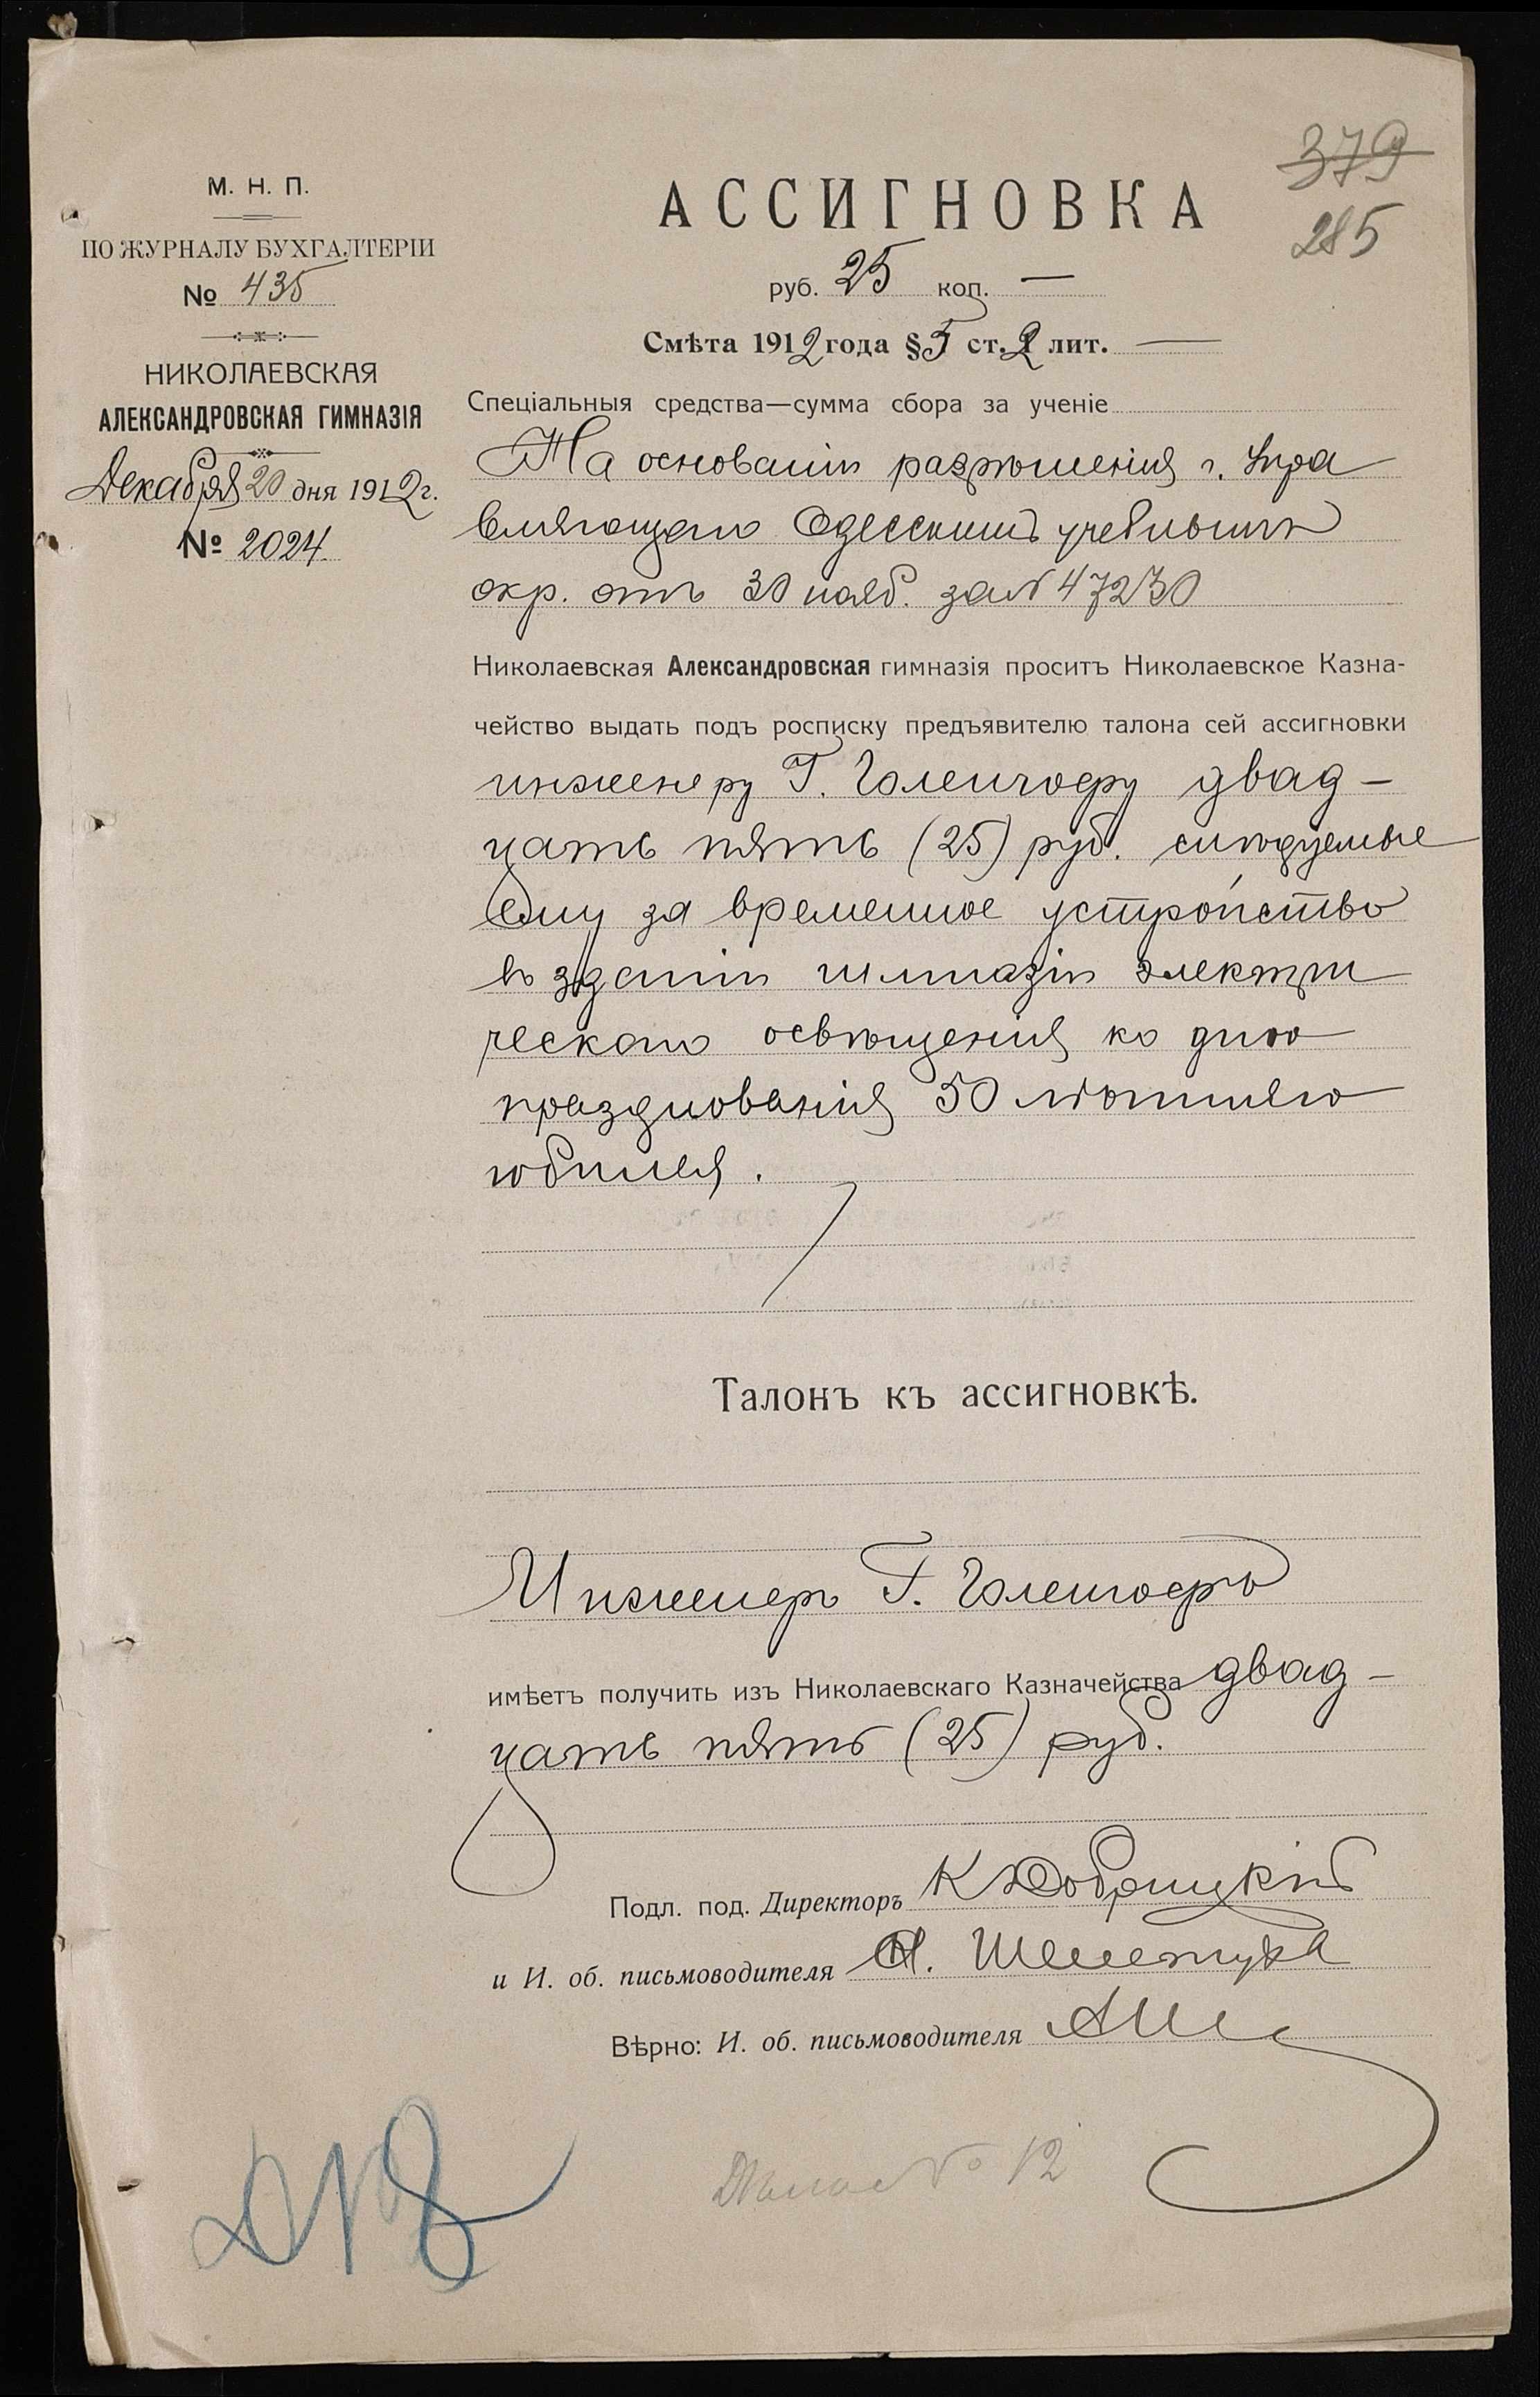 379
285
М. Н. П.
ПО ЖУРНАЛУ БУХГАЛТЕРІИ
№ 435
НИКОЛАЕВСКАЯ
АЛЕКСАНДРОВСКАЯ ГИМНАЗІЯ
Декабря 20 дня 1912 г.
№ 2024
АССИГНОВКА
руб. 25 коп. —
Смѣта 1912 года § 5 ст. 2 лит. —
Спеціальныя средства—сумма сбора за ученіе
На основаніи разрѣшенія г. Упра
вляющаго Одесскимъ учебнымъ
окр. отъ 30 нояб. за № 47230
Николаевская Александровская гимназія проситъ Николаевское Казна-
чейство выдать подъ росписку предъявителю талона сей ассигновки
инженеру Г. двад-
цать пять (25) руб. слѣдуемые
ему за временное устройство
въ зданіи гимназіи электри
ческаго освѣщенія ко дню
празднованія 50 лѣтняго
юбилея.
Талонъ къ ассигновкѣ.
Инженеръ Г.
имѣетъ получить изъ Николаевскаго Казначейства двад-
цать пять (25) руб.
Подл. под. Директоръ К Добрицкій
и И. об. письмоводителя
Вѣрно: И. об. письмоводителя
№ 12